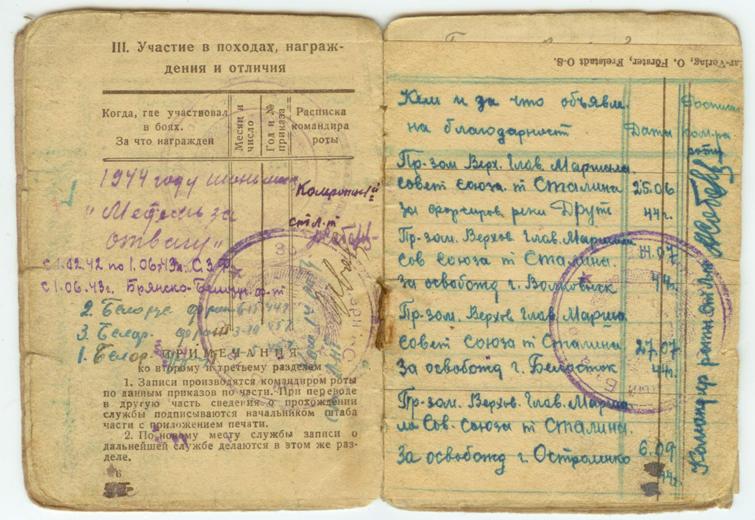 III. Участие в походах, награж-
дения и отличия
Когда, где участвовал
в боях.
За что награжден
Месяц и
число
Год и №
приказа
Расписка
командира
роты
1944 году июнь
"Медаль за
отвагу"
Комроты
ст л-т
с 1.02.42 по 1.06.43г. С.З.Ф.
с 1.06.43г. Брянско-
2. Белорус фрон
3. Белор. фронт
1. Белор.
ПРИМЕЧАНИЯ
ко второму и третьему разделам
1. Записи производятся командиром роты
по данным приказов по части. При переводе
в другую часть сведения о прохождении
службы подписываются начальником штаба
части с приложением печати.
2. По новому месту службы записи о
дальнейшей службе делаются в этом же раз-
деле.
6
ar-Verlag, O. Förster, Freistadt O-S.
Кем и за что объявл.
на благодарност
Даты
Пр-зом Верх. Глав. Маршала
совет союза т Сталина 25.06
за форсиров реки Друт 44г.
Пр-зом. Верхов. Глав. Маршал
сов союза т Сталина. 14.07
за освобожд г. Волковыск 44г.
Пр-зом. Верхов Глав. Марша
совет Союза т Сталина 27.07
За освобожд г. Белосток 44г.
Пр-зом. Верхов. Глав. Марша
ла Сов. Союза т Сталина.
За освобожд г. Остроленко 6.09
44г.
Командир роты ст л-т